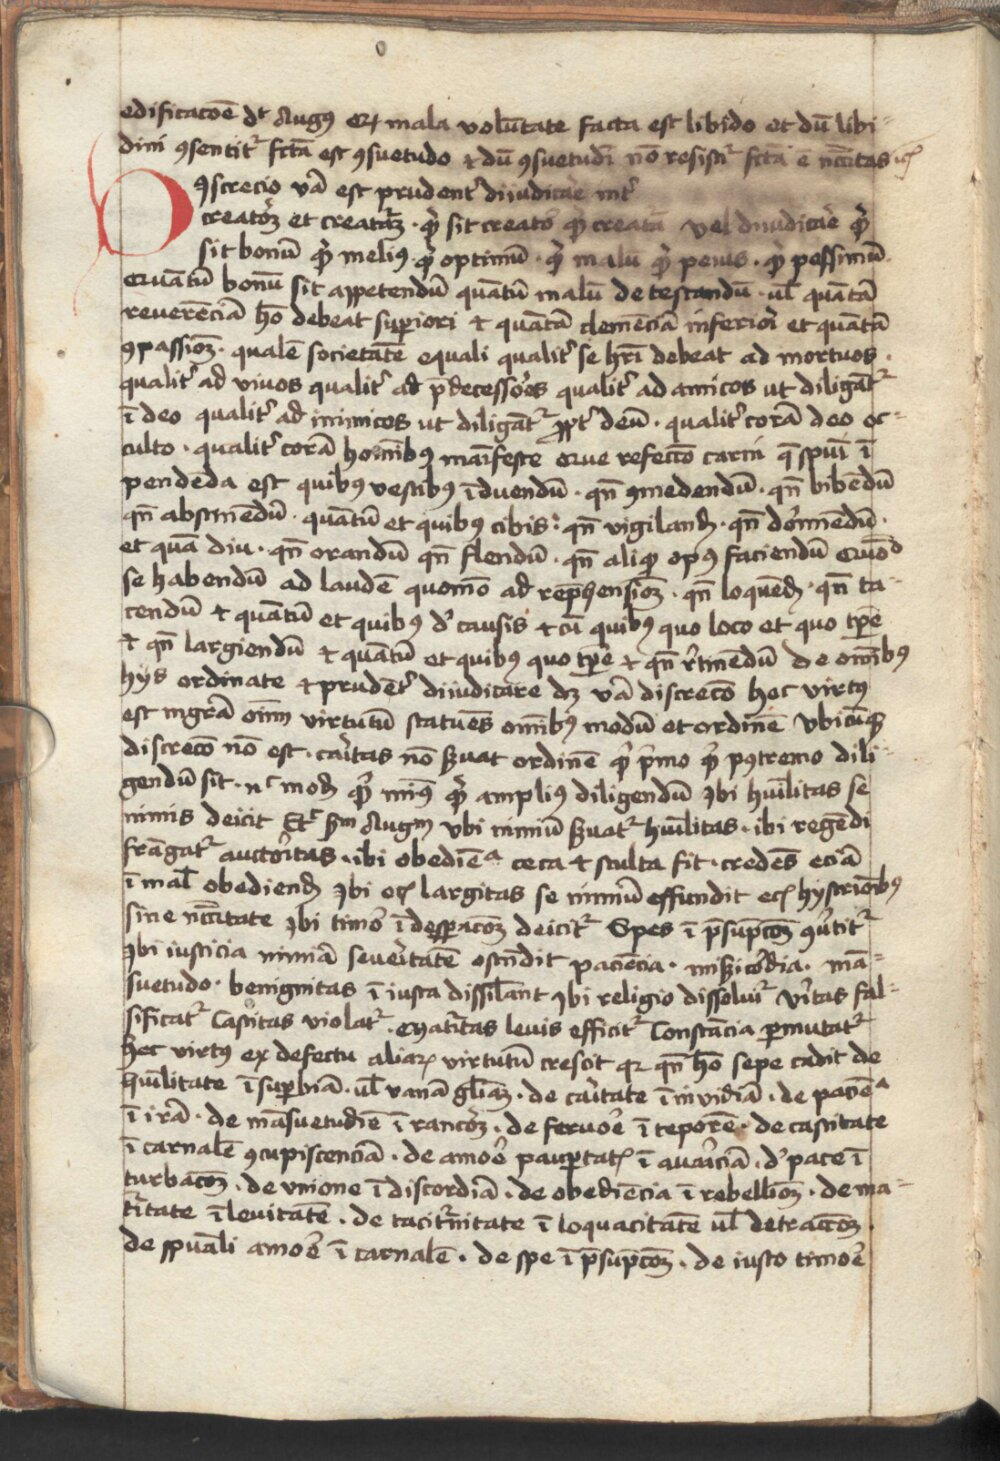 edificacōe dt Augꝰ ex mala volūtate facta est libido et dū libi-
dini ꝯsentitr fctā est ꝯsuetudo ⁊ dū ꝯsuetudī nō resistr fctā ē nccitas
Dyscrecio vā est prudentr diiudicare intr
creatorē et creaturā · qd sit creator qd creatā vel diiudicare qd
sit bonū qd meliꝰ qd optimū · qd malū qd peius · qd pessimū
Quātū bonū sit appetendū quātū malū detestandū · ul quātā
reuerēciā hō debeat superiori ⁊ quātā clemēciā inferiori et quātā
ꝯpassionē · qualē societatē equali qualitr se hri debeat ad mortuos ·
qualitr ad viuos qualitr ad p̄decessores qualitr ad amicos ut diligātr
ī deo qualitr ad inimicos ut diligātr ꝓptr deū · qualitr corā deo oc-
culto · qualitr corā homībꝰ manifeste Que refectō carni q̄ spūi ī
pendēda est quibꝰ vestibꝰ īduendū · qn̄ ꝯmedendū · qn̄ bibēdū
qn̄ abstinēdū · quātū et quibꝰ cibis · qn̄ vigilandū · qn̄ dormiēdū ·
et quā diu · qn̄ orandū qn̄ flendū · qn̄ aliqd opꝰ faciendū Quōo
se habendū ad laudē quomō ad rep̄hensionē · qn̄ loquēdū · qn̄ ta-
cendū ⁊ quātū et quibꝰ d' causis ⁊ cū quibꝰ quo loco et quo tp̄e
⁊ qn̄ largiendū ⁊ quātū et quibꝰ quo tp̄e ⁊ qn̄ rtinēdū de omībꝰ
hys ordinate ⁊ prudētr diiudicare dꝫ vā discrecō hec virtꝰ
est mgrā oīm virtutū statuēs omībꝰ modū et ordinē Vbicūqꝫ
discrecō nō est · caritas nō ẜuat ordinē qd p̄mo qd pꝰtremo dili-
gendū sit · nc modū qd minꝰ qd ampliꝰ diligendū Ibi huīlitas se
nimis deicit Etc scdm Augm vbi nimiū ẜuatr huīlitas · ibi regēdi
frāgatr auctoritas · ibi obediēa ceca ⁊ stulta fit · credēs eciā
ī mal obediendū Ibi ecꝫ largitas se nimiū effundit ecꝫ hystrionibꝰ
sine nccitate Ibi timor ī despacōꝫ deicitr Spes ī p̄sūpcōꝫ ꝯūtitr
Ibi iusticia nimiā seueritatē ostndit paciēcia · misericordia · mā-
suetudo · benignitas ī iusta dissilant Ibi religio dissoluitr Vritas fal-
sificatr Castitas violatr · Maturitas leuis efficitr Constācia permutatr
Hec virtꝰ ex defectu aliarū virtutū crescit qr qn̄ hō sepe cadit de
huīlitate ī superbiā · ul vanā glīaꝫ · de caritate ī inuidiā · de paciēa
ī irā · de māsuetudīe ī rancorē · de feruore ī teporē · de castitate
ī carnalē ꝯcupiscenciā · de amore paupertatꝭ ī auariciā · d' pace ī
turbacōꝫ · de vnione ī discordiā · de obediencia ī rebellionē · de ma-
tritate ī leuitatē · de taciturnitate ī loquacitatē ul detractōꝫ ·
de spūali amore ī carnalē · de spe ī p̄sūpcōꝫ · de iusto timore